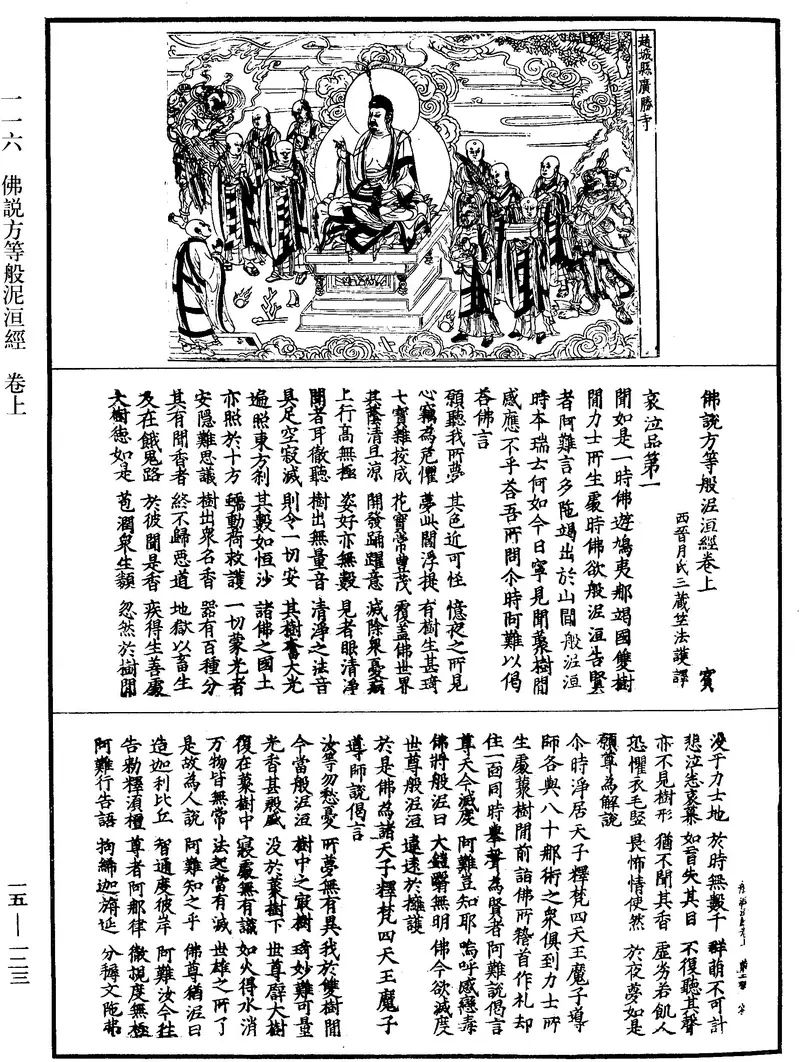 一一六　佛説方等般泥洹經　卷上
趙城縣廣勝寺
佛說方等般泥洹經卷上　賓
西晉月氏三藏竺法護譯
哀泣品第一
聞如是一時佛遊鳩夷那竭國雙樹
間力士所生處時佛欲般泥洹告賢
者阿難言多陁竭出於山閒般泥洹
時本瑞云何如今日寧見聞藂樹間
感應不乎荅吾所問尒時阿難以偈
荅佛言
願聽我所夢　其色近可怪　憶夜之所見
心竊為危懼　夢此閻浮提　有樹生甚琦
七寶雜挍成　花實常豊茂　覆盖佛世界
其蔭清且凉　開發踊躍意　滅除衆憂病
上行高無極　姿好亦無數　見者眼清淨
聞者耳徹聽　樹出無量音　清淨之法音
具足空寂滅　則令一切安　其樹奮大光
遍照東方刹　其數如恒沙　諸佛之國土
亦照於十方　蠕動荷救護　一切蒙光者
安隱難思議　樹出衆名香　器有百種分
其有聞香者　終不歸惡道　地獄以畜生
及在餓鬼路　於彼聞是香　疾得生善處
大樹德如是　苞潤衆生類　忽然於樹間
没于力士地　於時無數千　群萌不可計
悲泣悉哀慕　如盲失其目　不復聽其聲
亦不見樹形　猶不聞其香　虛劣若飢人
恐懼衣毛竪　畏怖情使然　於夜夢如是
願尊為解說
尒時淨居天子釋梵四天王魔子導
師各與八十那術之衆俱到力士所
生處藂樹間前詣佛所稽首作礼却
住一面同時舉聲為賢者阿難說偈言
尊天今滅度　阿難豈知耶　嗚呼感戀毒
佛將般泥曰　大錯翳無明　佛今欲滅度
世尊般泥洹　遠逺於擁護
於是佛為諸天子釋梵四天王魔子
導師說偈言
汝等勿愁憂　所夢無有異　我於雙樹間
今當般泥洹　樹中之寂樹　琦妙難可量
光香甚殷盛　没於藂樹下　世尊辟大樹
復在藂樹中　寂處無有識　如火得水消
万物皆無常　法起當有滅　世雄之所了
是故為人說　阿難知之乎　佛尊猶泥曰
造迦利比丘　智通度彼岸　阿難汝今往
告勑釋湏檀　尊者阿那律　徹視度無極
阿難行告語　拘絺迦旃延　分耨文陁弗